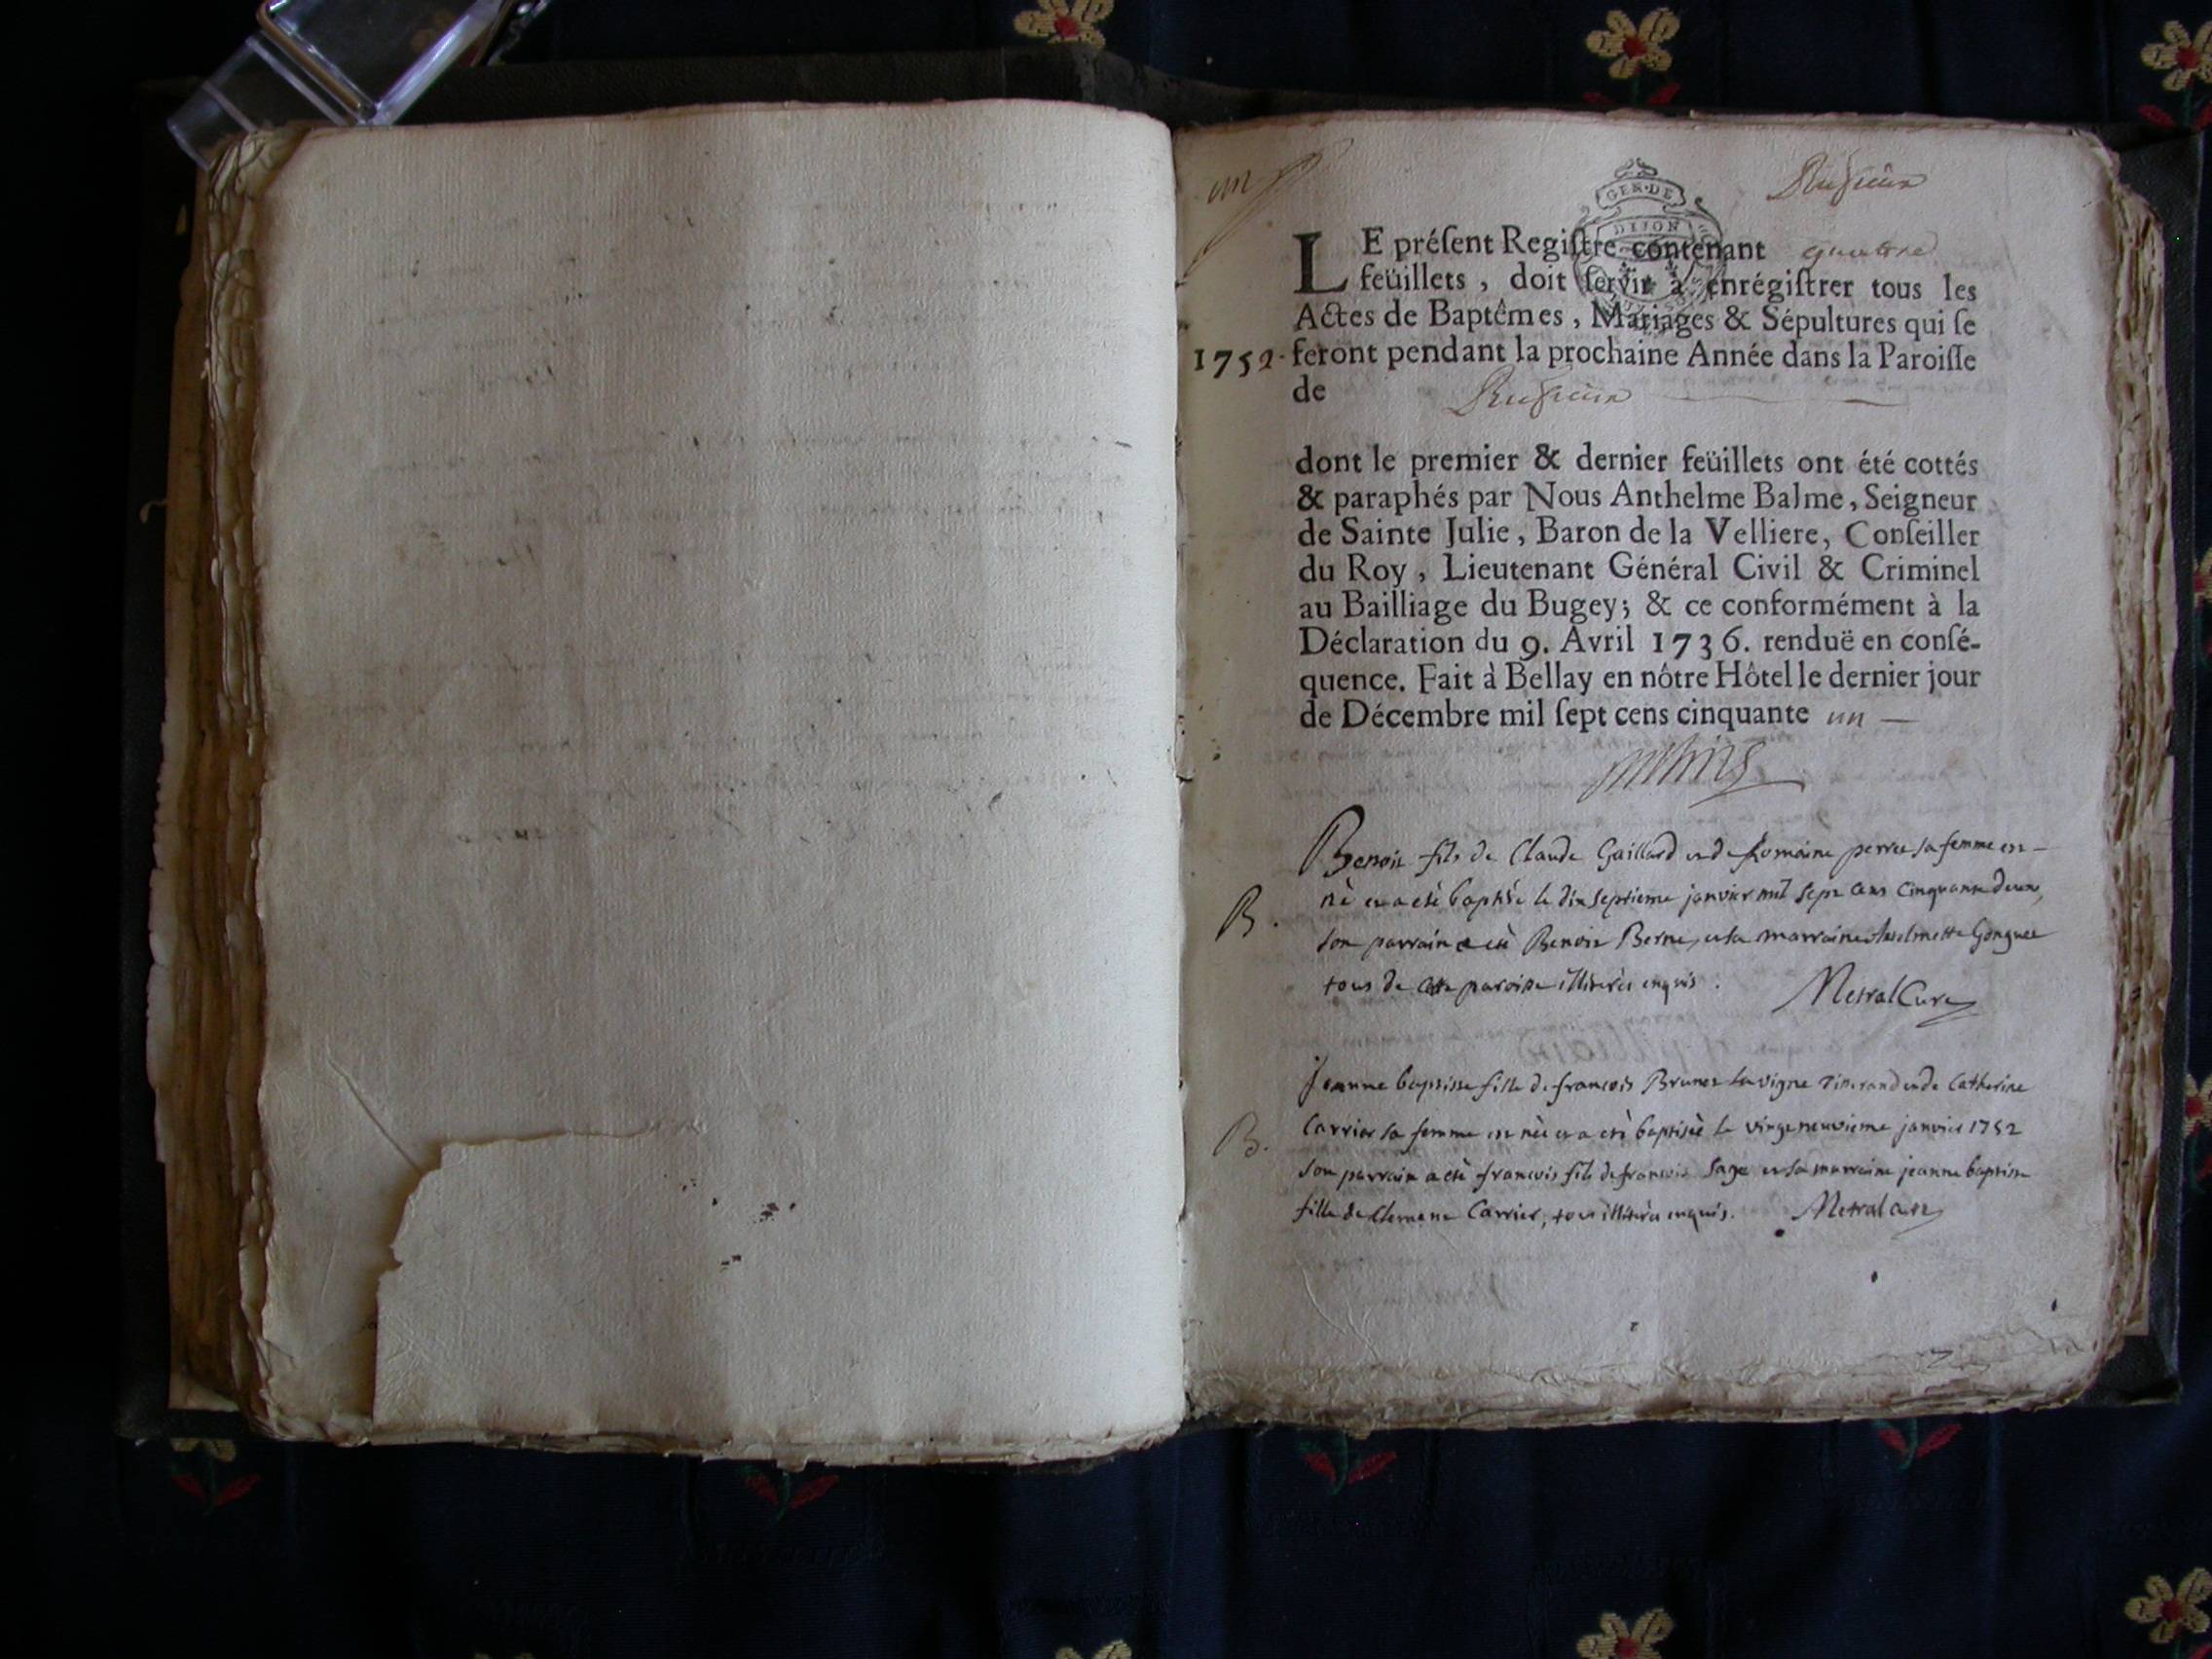 un
GEN·DE
DIJON
LE préſent Regiſtre contenant quatre
feüillets, doit ſervir à enrégiſtrer tous les
Actes de Baptêmes, Mariages & Sépultures qui ſe
1752. feront pendant la prochaine Année dans la Paroiſſe
de
dont le premier & dernier feüillets ont été cottés
& paraphés par Nous Anthelme Balme, Seigneur
de Sainte Julie, Baron de la Velliere, Conſeiller
du Roy, Lieutenant Général Civil & Criminel
au Bailliage du Bugey; & ce conformément à la
Déclaration du 9. Avril 1736. renduë en conſé-
quence. Fait à Bellay en nôtre Hôtel le dernier jour
de Décembre mil ſept cens cinquante un —
Benoit fils de Claude Gaillard et de Romaine perret sa femme est
B. né et a eté baptisé le dix septieme janvier mil sept cens cinquante deux,
son parrain a eté Benoit Berne, et sa marraine
tous de cette paroisse illiterés enquis. Metral Curé
Jeanne baptiste fille de francois Brunet Lavigne et de Catherine
B. Carrier sa femme est née et a eté baptisée le vingt neuvieme janvier 1752
son parrain a eté francois fils de francois Sage et sa marraine jeanne baptiste
fille de Clement Carrier, tous illiterés enquis. Metral curé